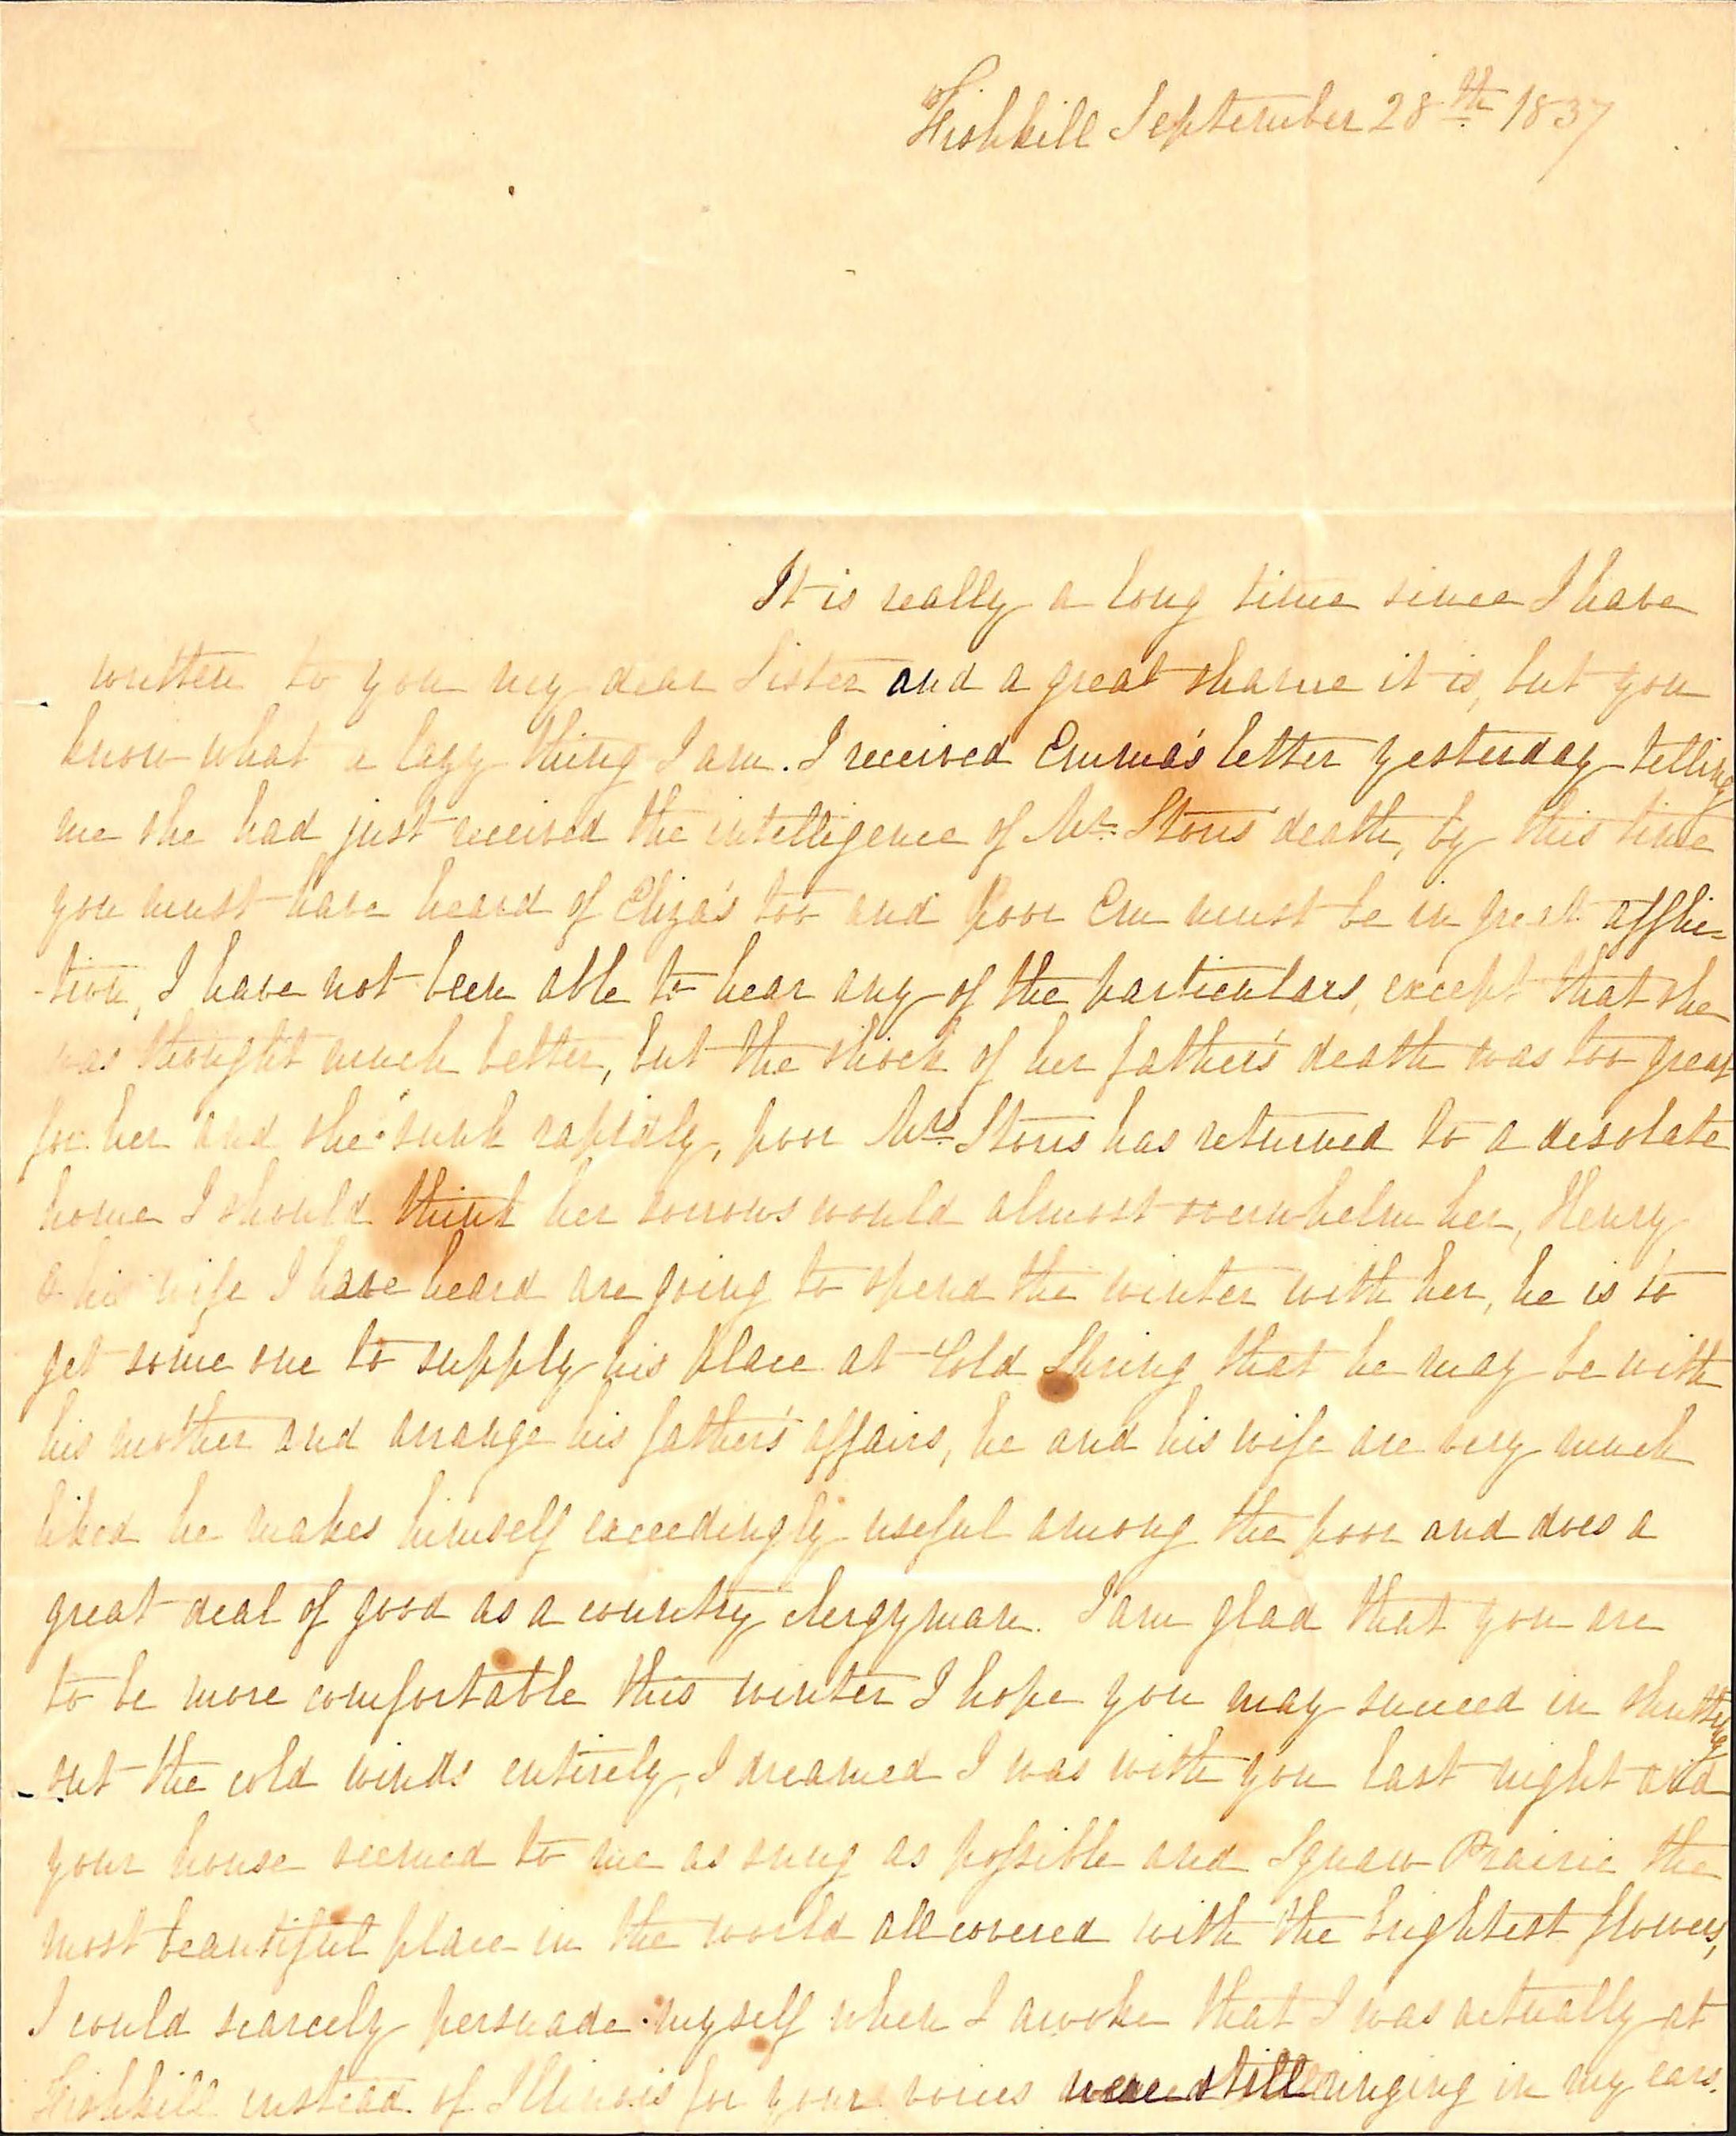 Fishkill September 28th 1837
It is really a long time since I have
written to you my dear Sister and a great shame it is, but you
know what a lazy thing I am. I received Emma's letter yesterday telling
me she had just received the intelligence of Mr. Storis death, by this time
you must have heard of Eliza's too and poor Em must be in great afflic-
-tion, I have not been able to hear any of the particulars, except that she
was thought much better, but the shock of her father's death was too great
for her and she sunk rapidly, poor Mrs Storis has returned to a desolate
home I should think her sorrows would almost overwhelm her, Henry
& his wife I have heard are going to spend the winter with her, he is to
get some one to supply his place at Cold Spring that he may be with
his mother and arrange his father's affairs, he and his wife are very much
liked he makes himself exceedingly useful among the poor and does a
great deal of good as a country clergyman. I am glad that you are
to be more comfortable this winter I hope you may succeed in shutting
out the cold winds entirely, I dreamed I was with you last night and
your house seemed to me as snug as possible and Squaw Prairie the
most beautiful place in the world all covered with the brightest flowers,
I could scarcely persuade myself when I awoke that I was actually at
Fishkill instead of Illinois for your voices were still ringing in my ears.